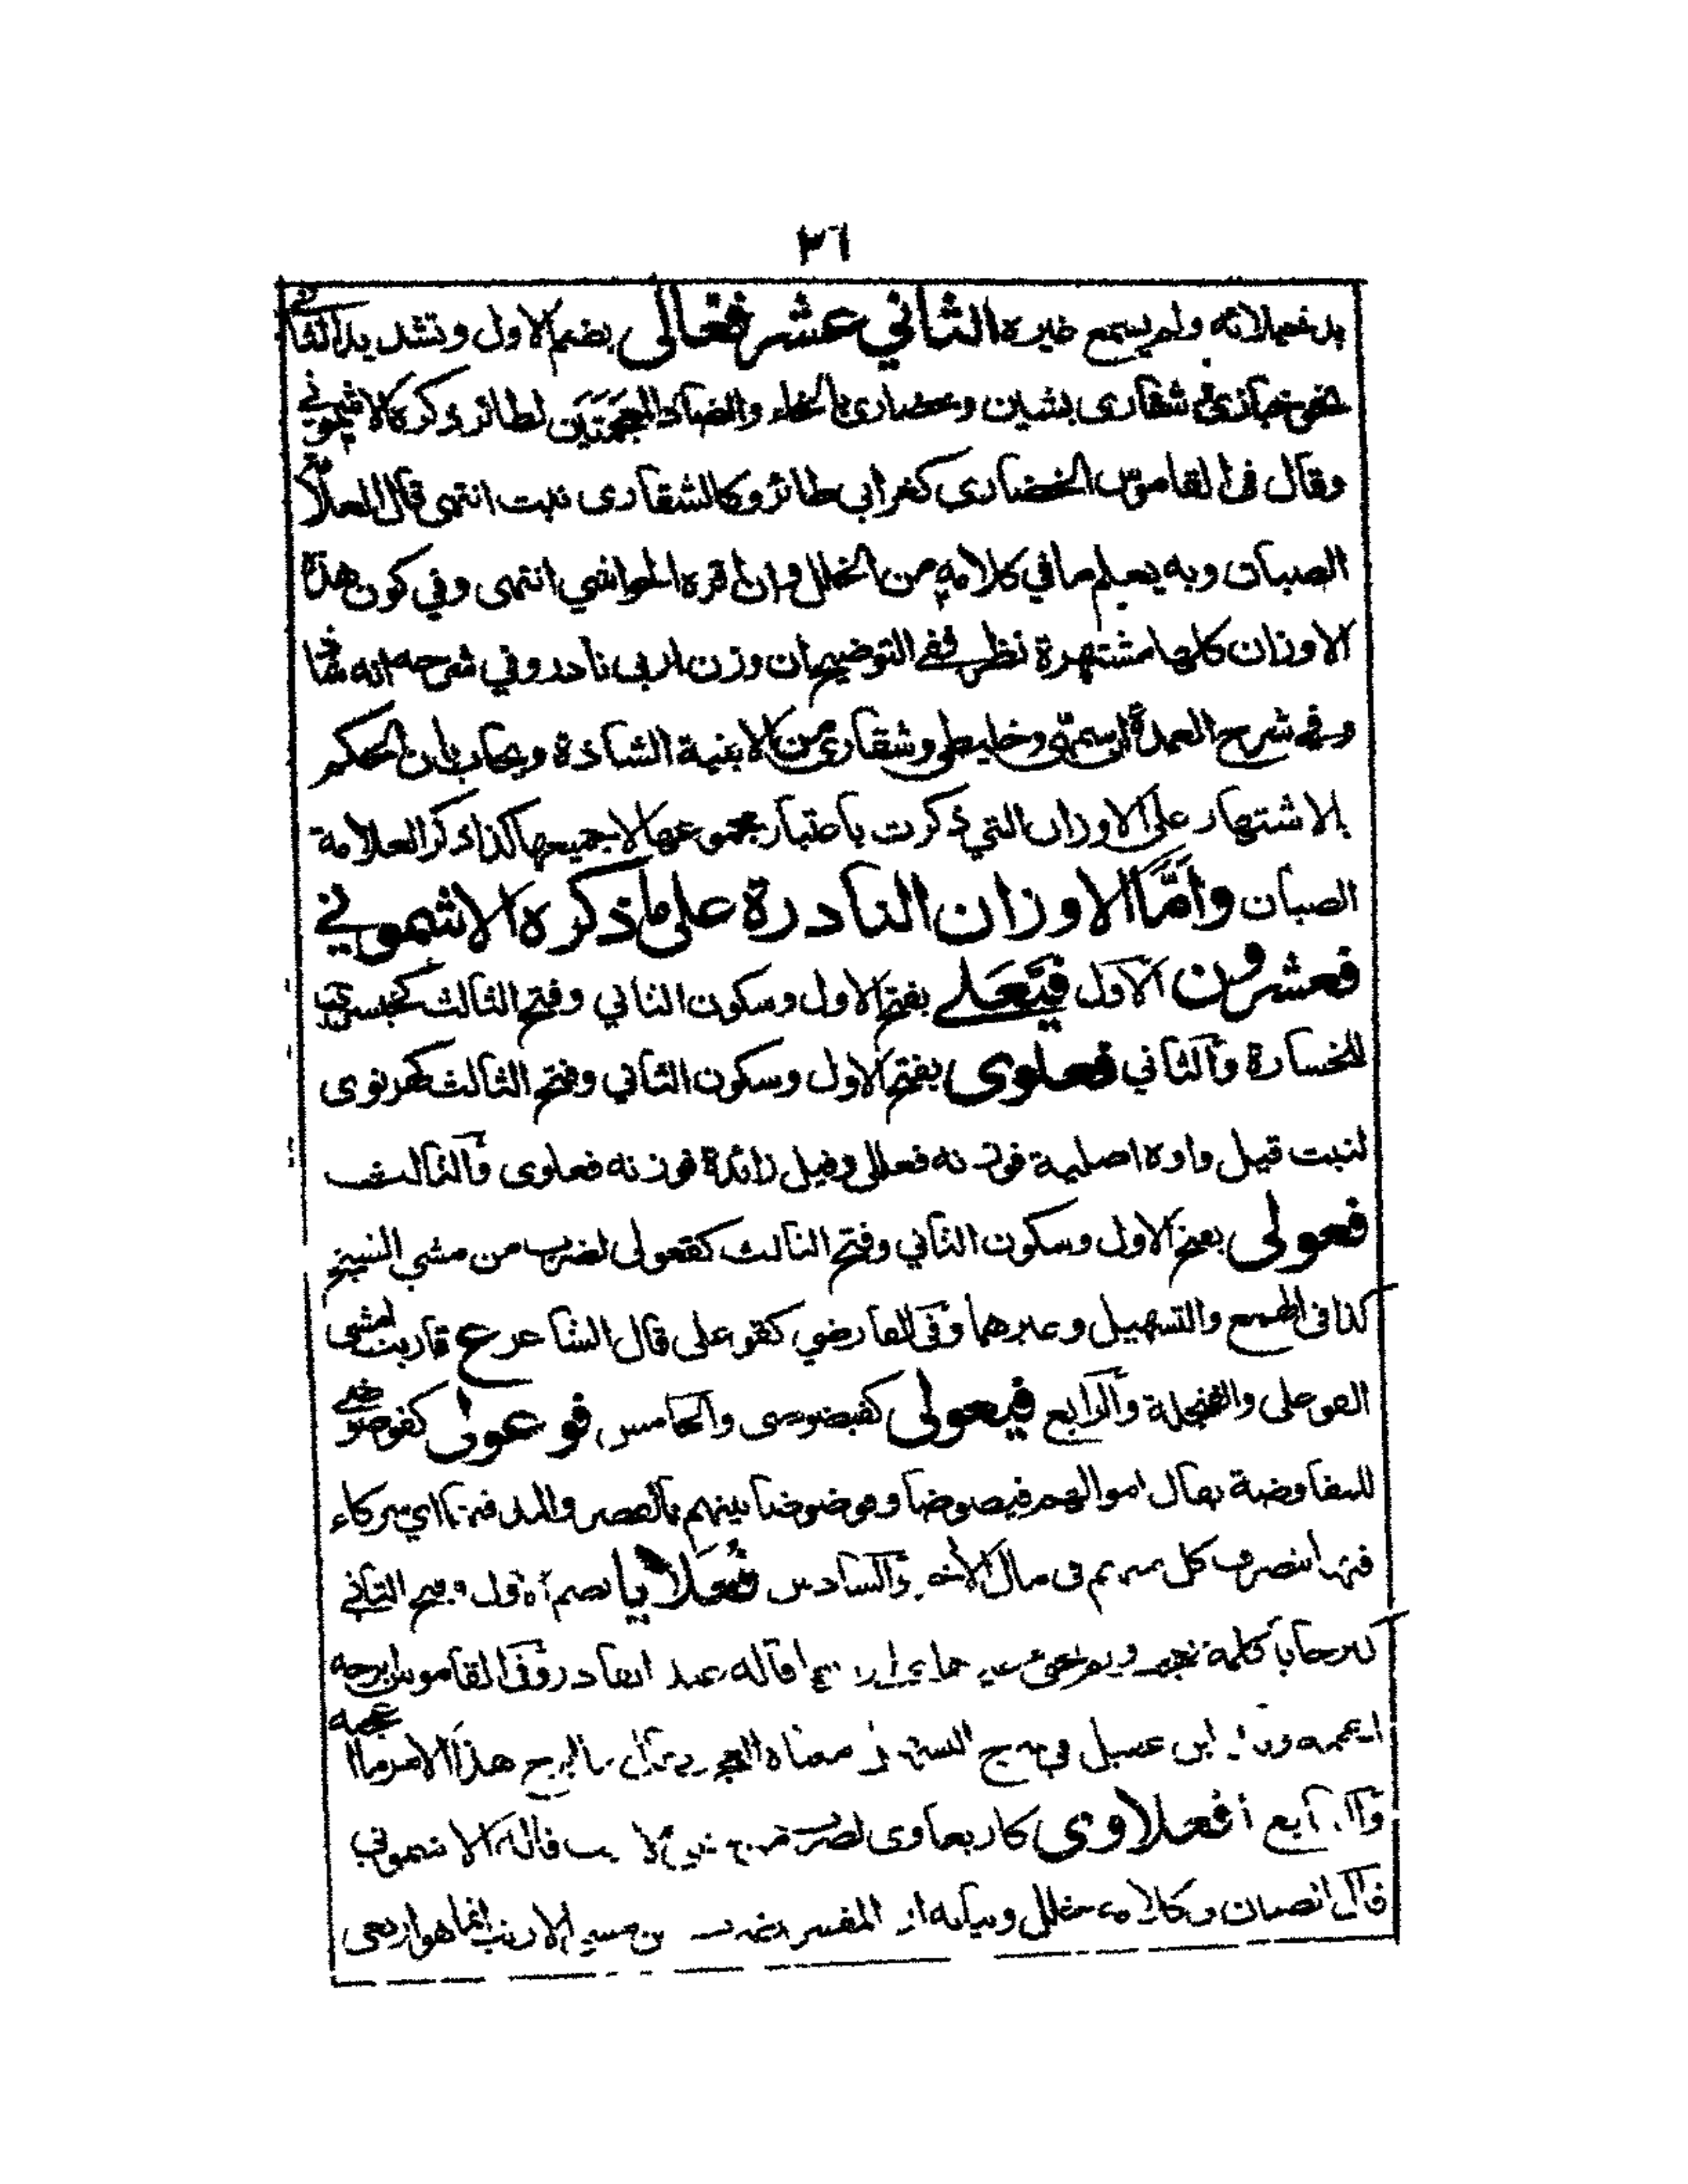 ٢٦
ولم يسمع غيره الثاني عشر فعالى بضم الاول وتشديد الثاني
نحو خبازى شقارى بشين وخضارى بالخاء والضاد المعجمتين لطائر ذكره الاشموني
وقال فى القاموس الخضارى كغرابى طائر وكالشقارى نبت انتهى قال العلامة
الصبان وبه يعلم ما في كلامه من الخلل وان اقره الحواشي انتهى وفي كون هذه
الاوزان كلها مشتهرة نظر ففى التوضيح ان وزن اربى نادر وفي شرحه انه شاذ
وفي شرح العمدة ان سمهى وخليطى وشقارى من الابنية الشاذة ويجاب بان الحكم
بالاشتهار على الاوزان التي ذكرت باعتبار مجموعها لا جميعها كذا ذكر العلامة
الصبان وأمّا الاوزان النادرة على ما ذكره الاشموني
فعشرون الاول فَيْعَلى بفتح الاول وسكون الثاني وفتح الثالث كخيسرى
للخسارة والثاني فعلوى بفتح الاول وسكون الثاني وفتح الثالث كهرنوى
لنبت قيل واوه اصلية فوزنه فعللى وقيل زائدة فوزنه فعلوى والثالث
فعولى بفتح الاول وسكون الثاني وفتح الثالث كقعولى لضرب من مشي الشيخ
كذا فى الهمع والتسهيل وغيرهما وفى الفارضي كقوعلى قال الشاعر ع قاربت امشي
القوعلى والفنجلة والرابع فيعولى كفيضوضى والخامس فوعولى كفوضوضى
للمفاوضة يقال اموالهم فيضوضا وفوضوضا بينهم بالقصر والمد فيهما اي شركاء
فيها يتصرف كل منهم فى مال الآخر والسادس فُعَلايا بضم الاول وفتح الثاني
كبرحايا كلمة تعجب قاله عبد القادر وفى القاموس ابرحه
اعجبه ابن عقيل في معناه العجب يقال ما ابرح هذا الامر ما اعجبه
والرابع افعلاوى كاربعاوى لضرب من قاله الاشموني
قال الصبان وكلامه خلل وبيانه ان المفسر بضرب من مشي الارنب انما هو اربعى